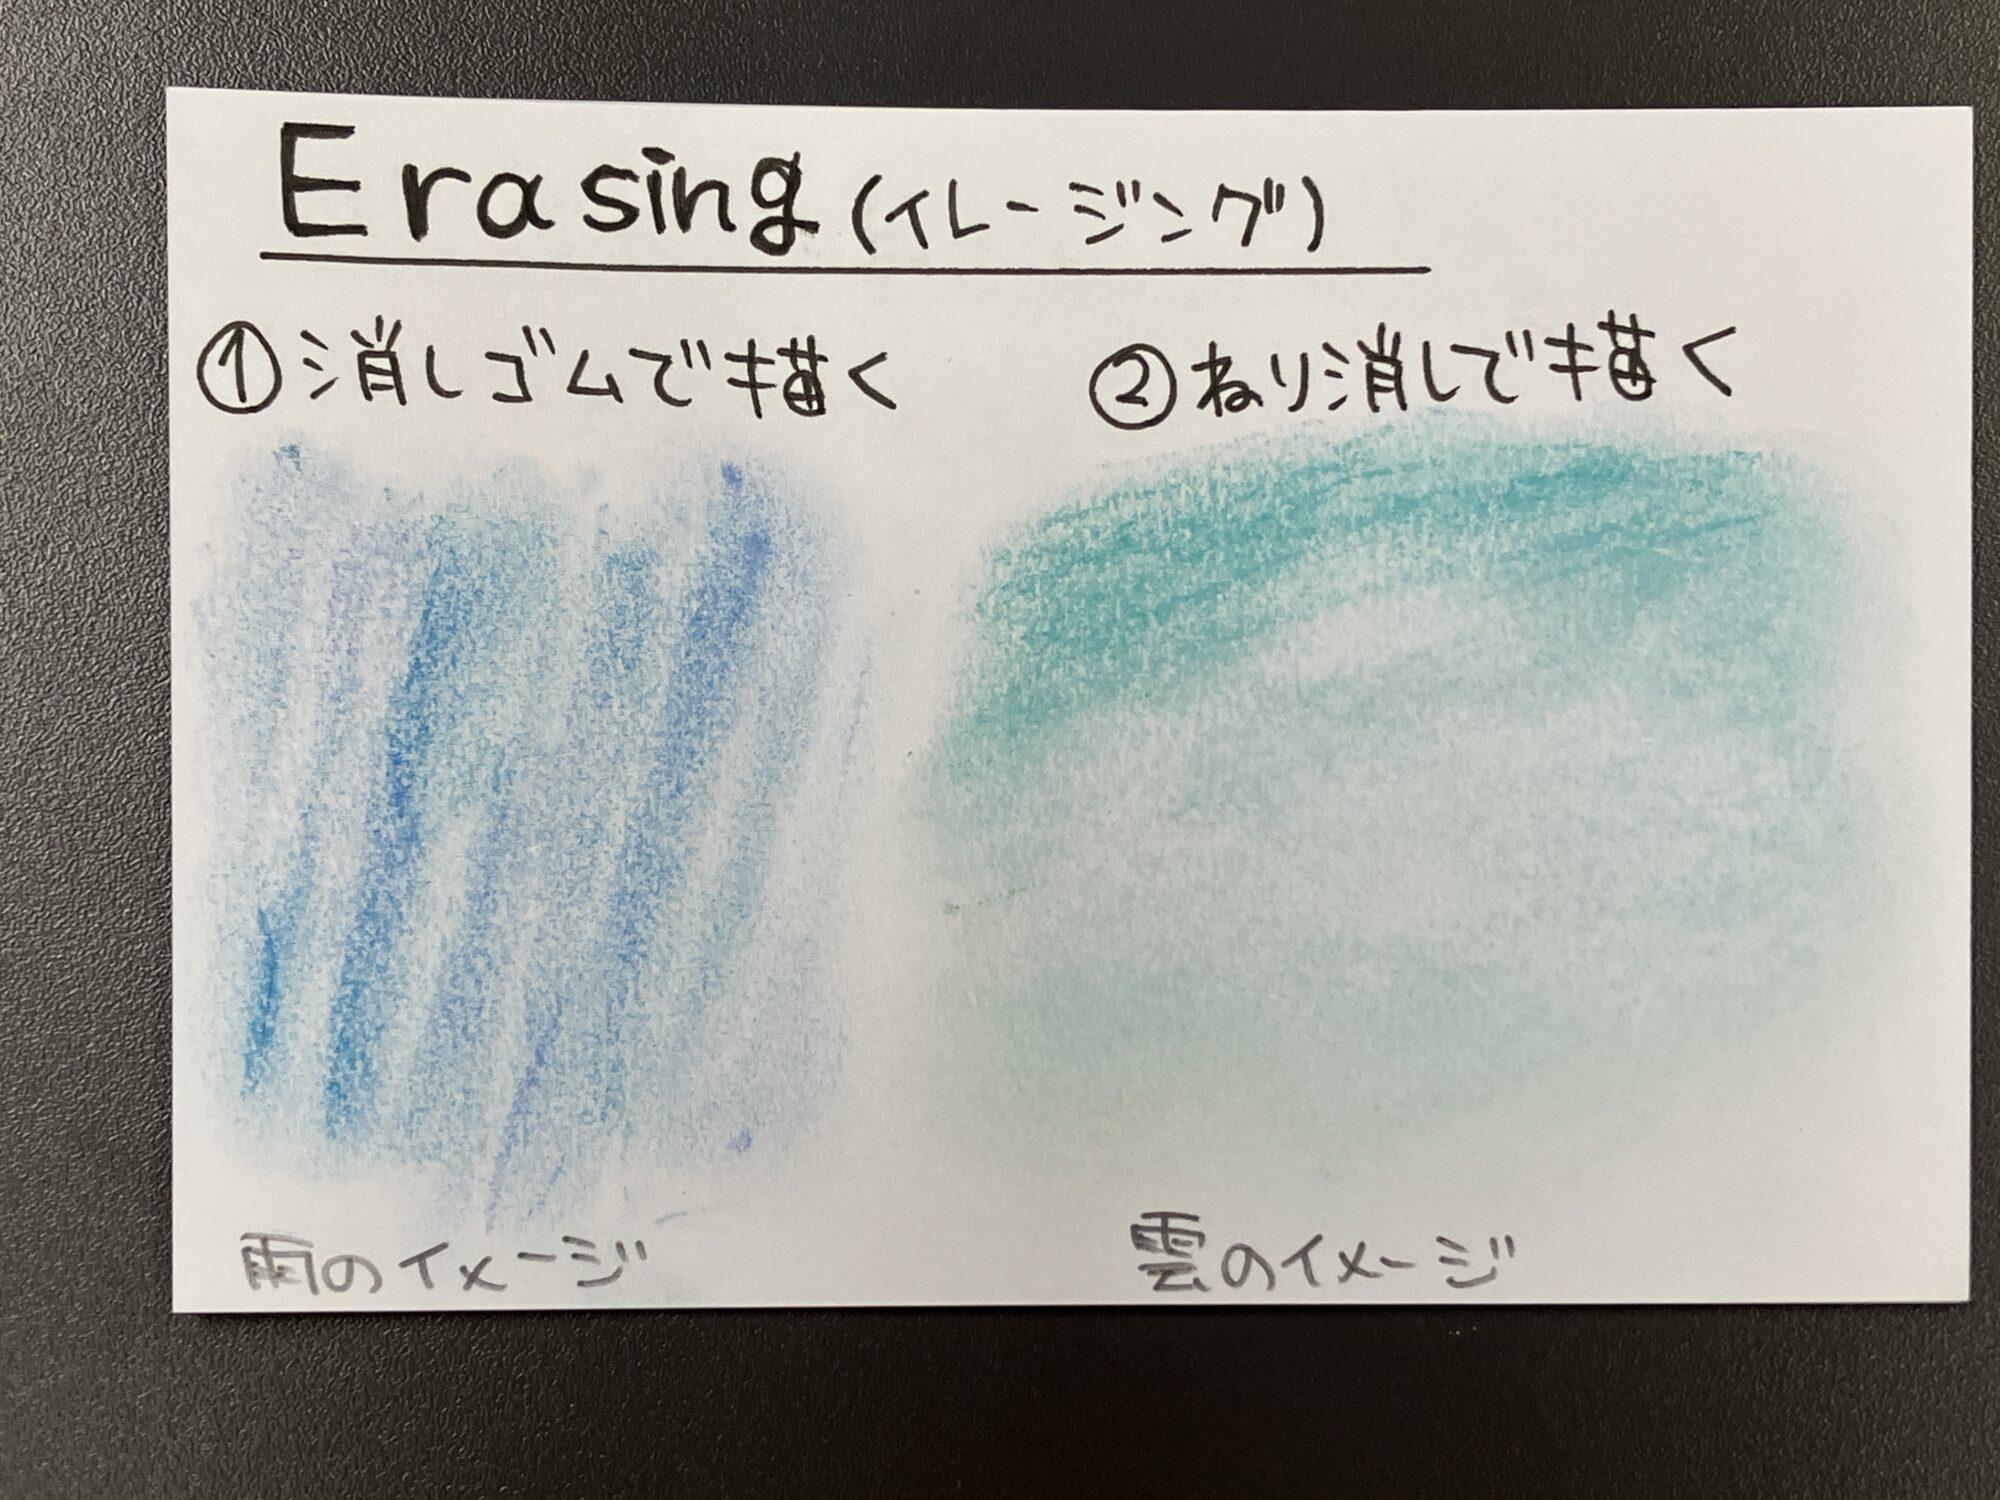 Erasing (イレージング)
①消しゴムで描く
②ねり消しで描く
雨のイメージ
雲のイメージ